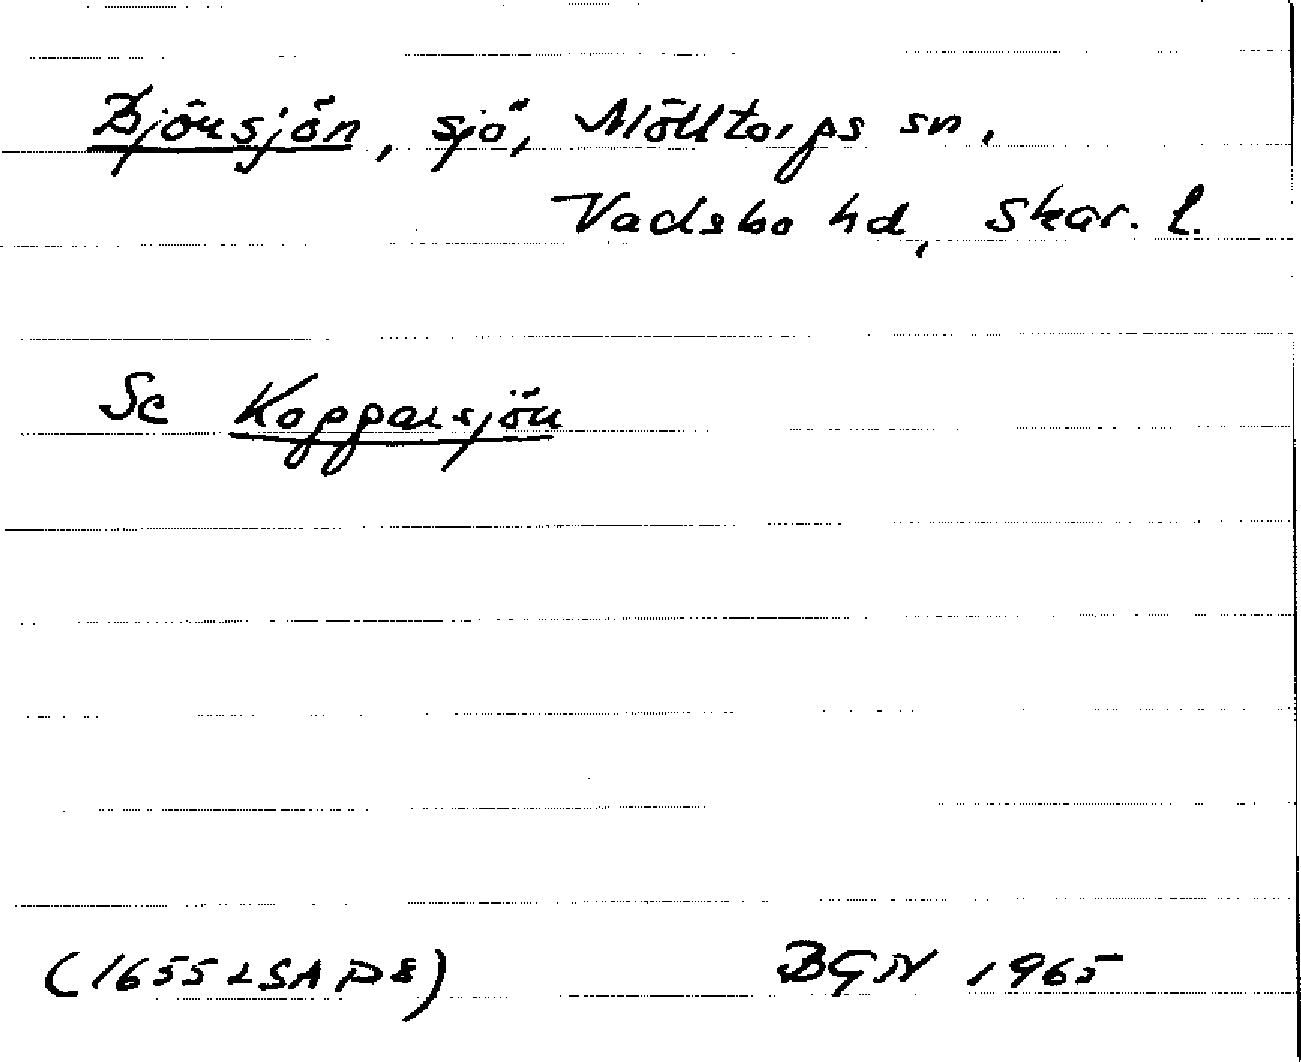 Björsjön, sjö, Mölltorps sn,
Vadsbo hd, Skar. l.
Se Kopparsjön
(1655 LSA P8)
BGN 1965